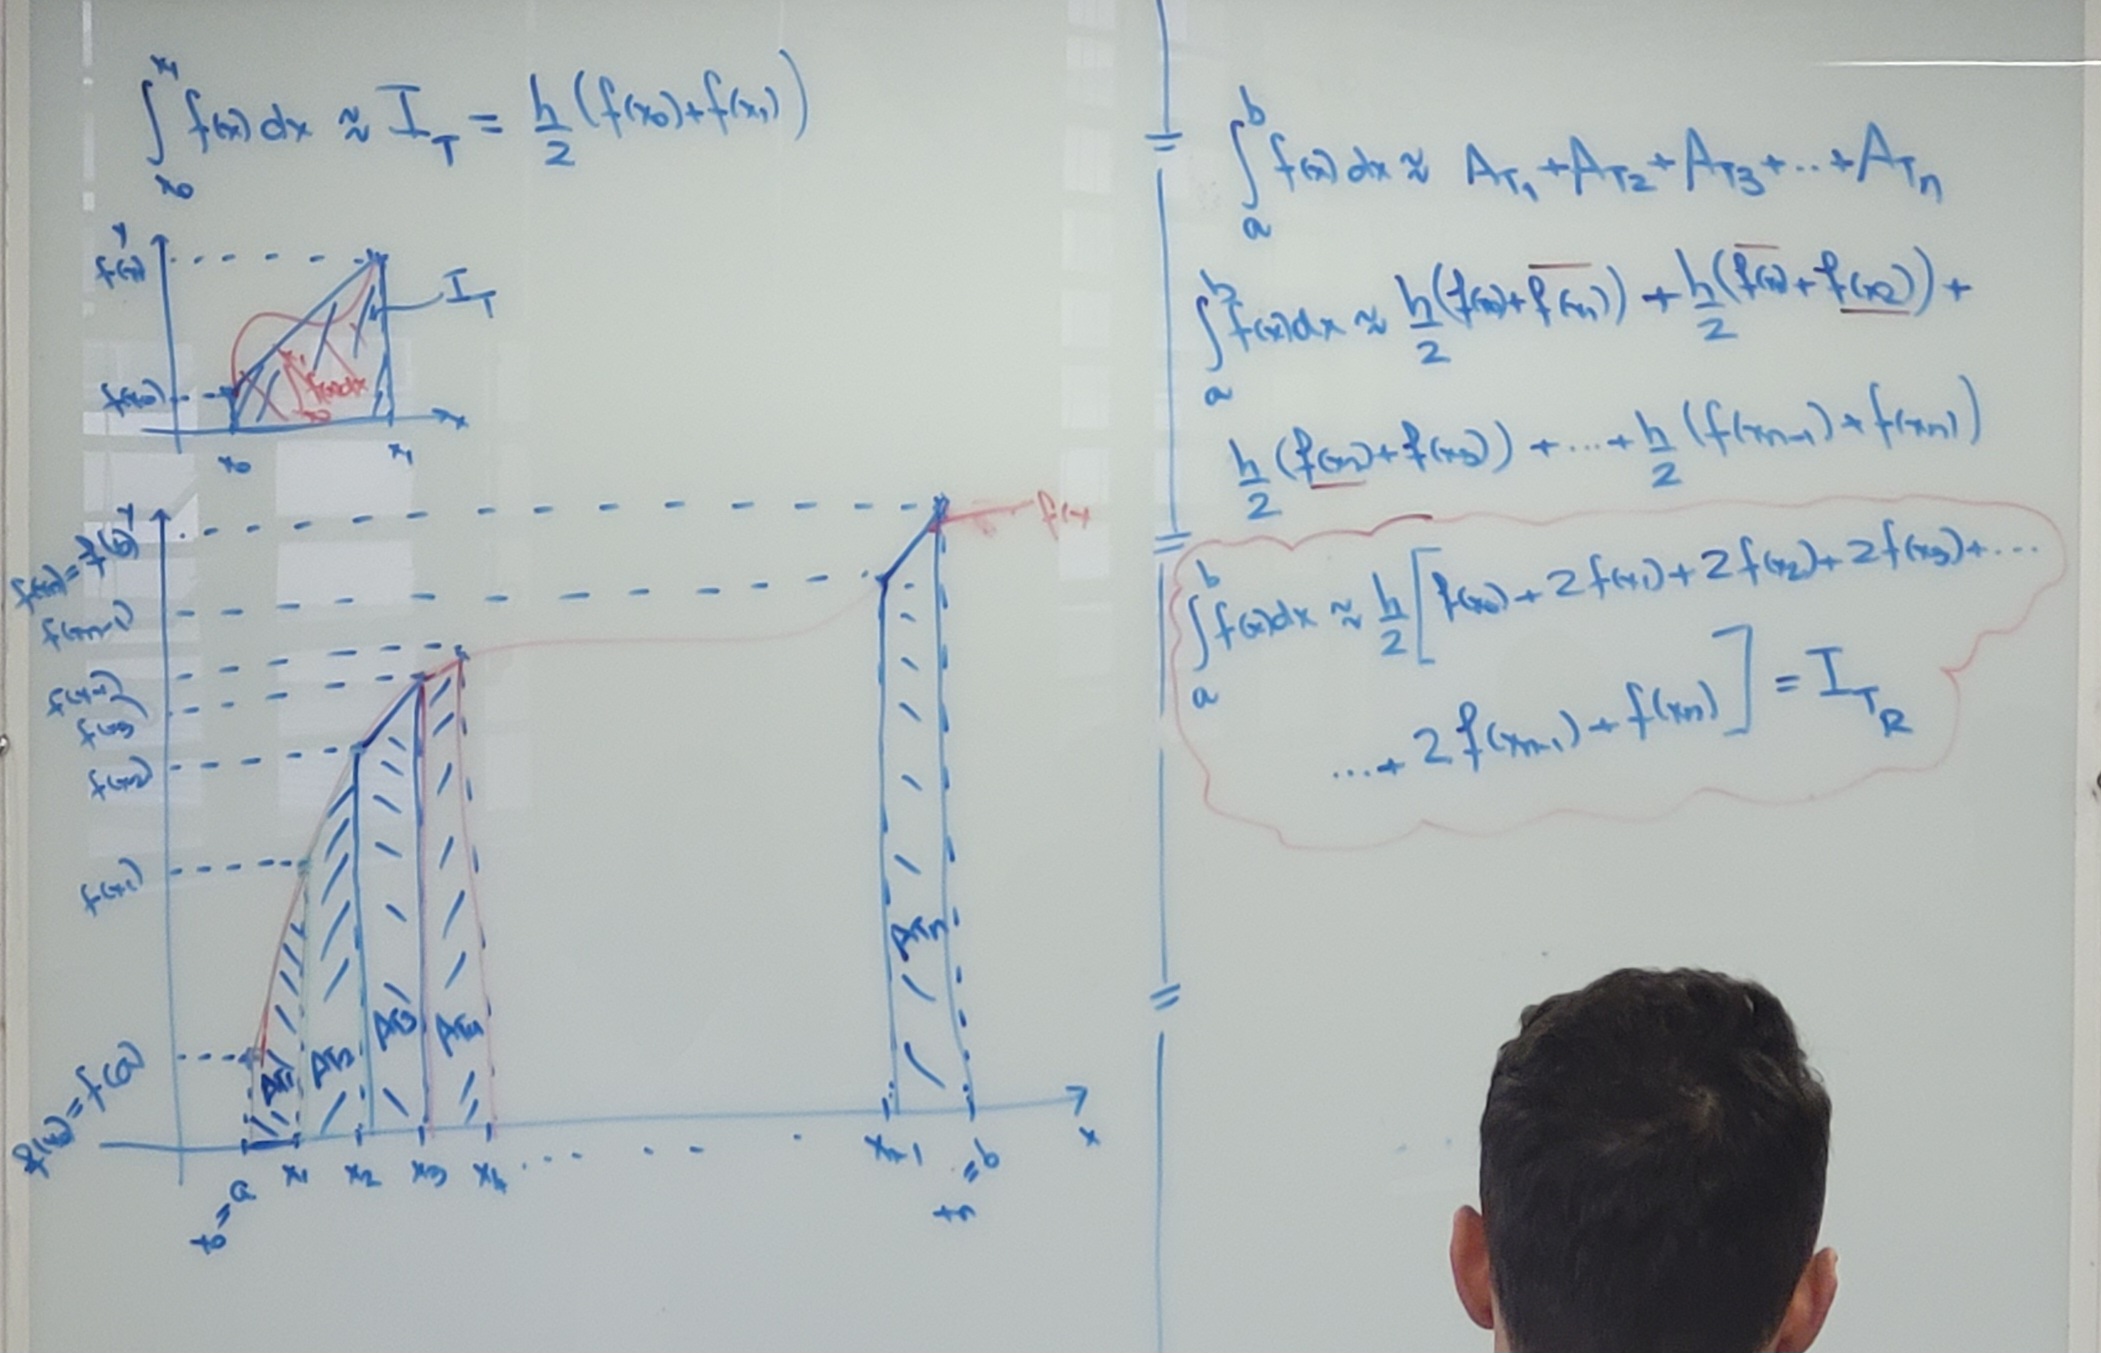 ∫_{x₀}^{x₁} f(x) dx ≈ I_T = h/2 (f(x₀)+f(x₁))
y
f(x₁)
I_T
f(x₀)
∫_{x₀}^{x₁} f(x)dx
x
x₀ x₁
y
f(xₙ)=f(b)
f(x)
f(xₙ₋₁)
f(x₄)
f(x₃)
f(x₂)
f(x₁)
f(x₀)=f(a)
A_T1 A_T2 A_T3 A_T4 A_Tn
x₀=a x₁ x₂ x₃ x₄ ..... xₙ₋₁ xₙ=b x
∫_a^b f(x) dx ≈ A_T1+A_T2+A_T3+...+A_Tn
∫_a^b f(x)dx ≈ h/2 (f(x₀)+f(x₁)) + h/2 (f(x₁)+f(x₂)) +
h/2 (f(x₂)+f(x₃)) + ... + h/2 (f(xₙ₋₁)+f(xₙ))
∫_a^b f(x)dx ≈ h/2 [f(x₀)+2f(x₁)+2f(x₂)+2f(x₃)+...
...+2f(xₙ₋₁)+f(xₙ)] = I_TR